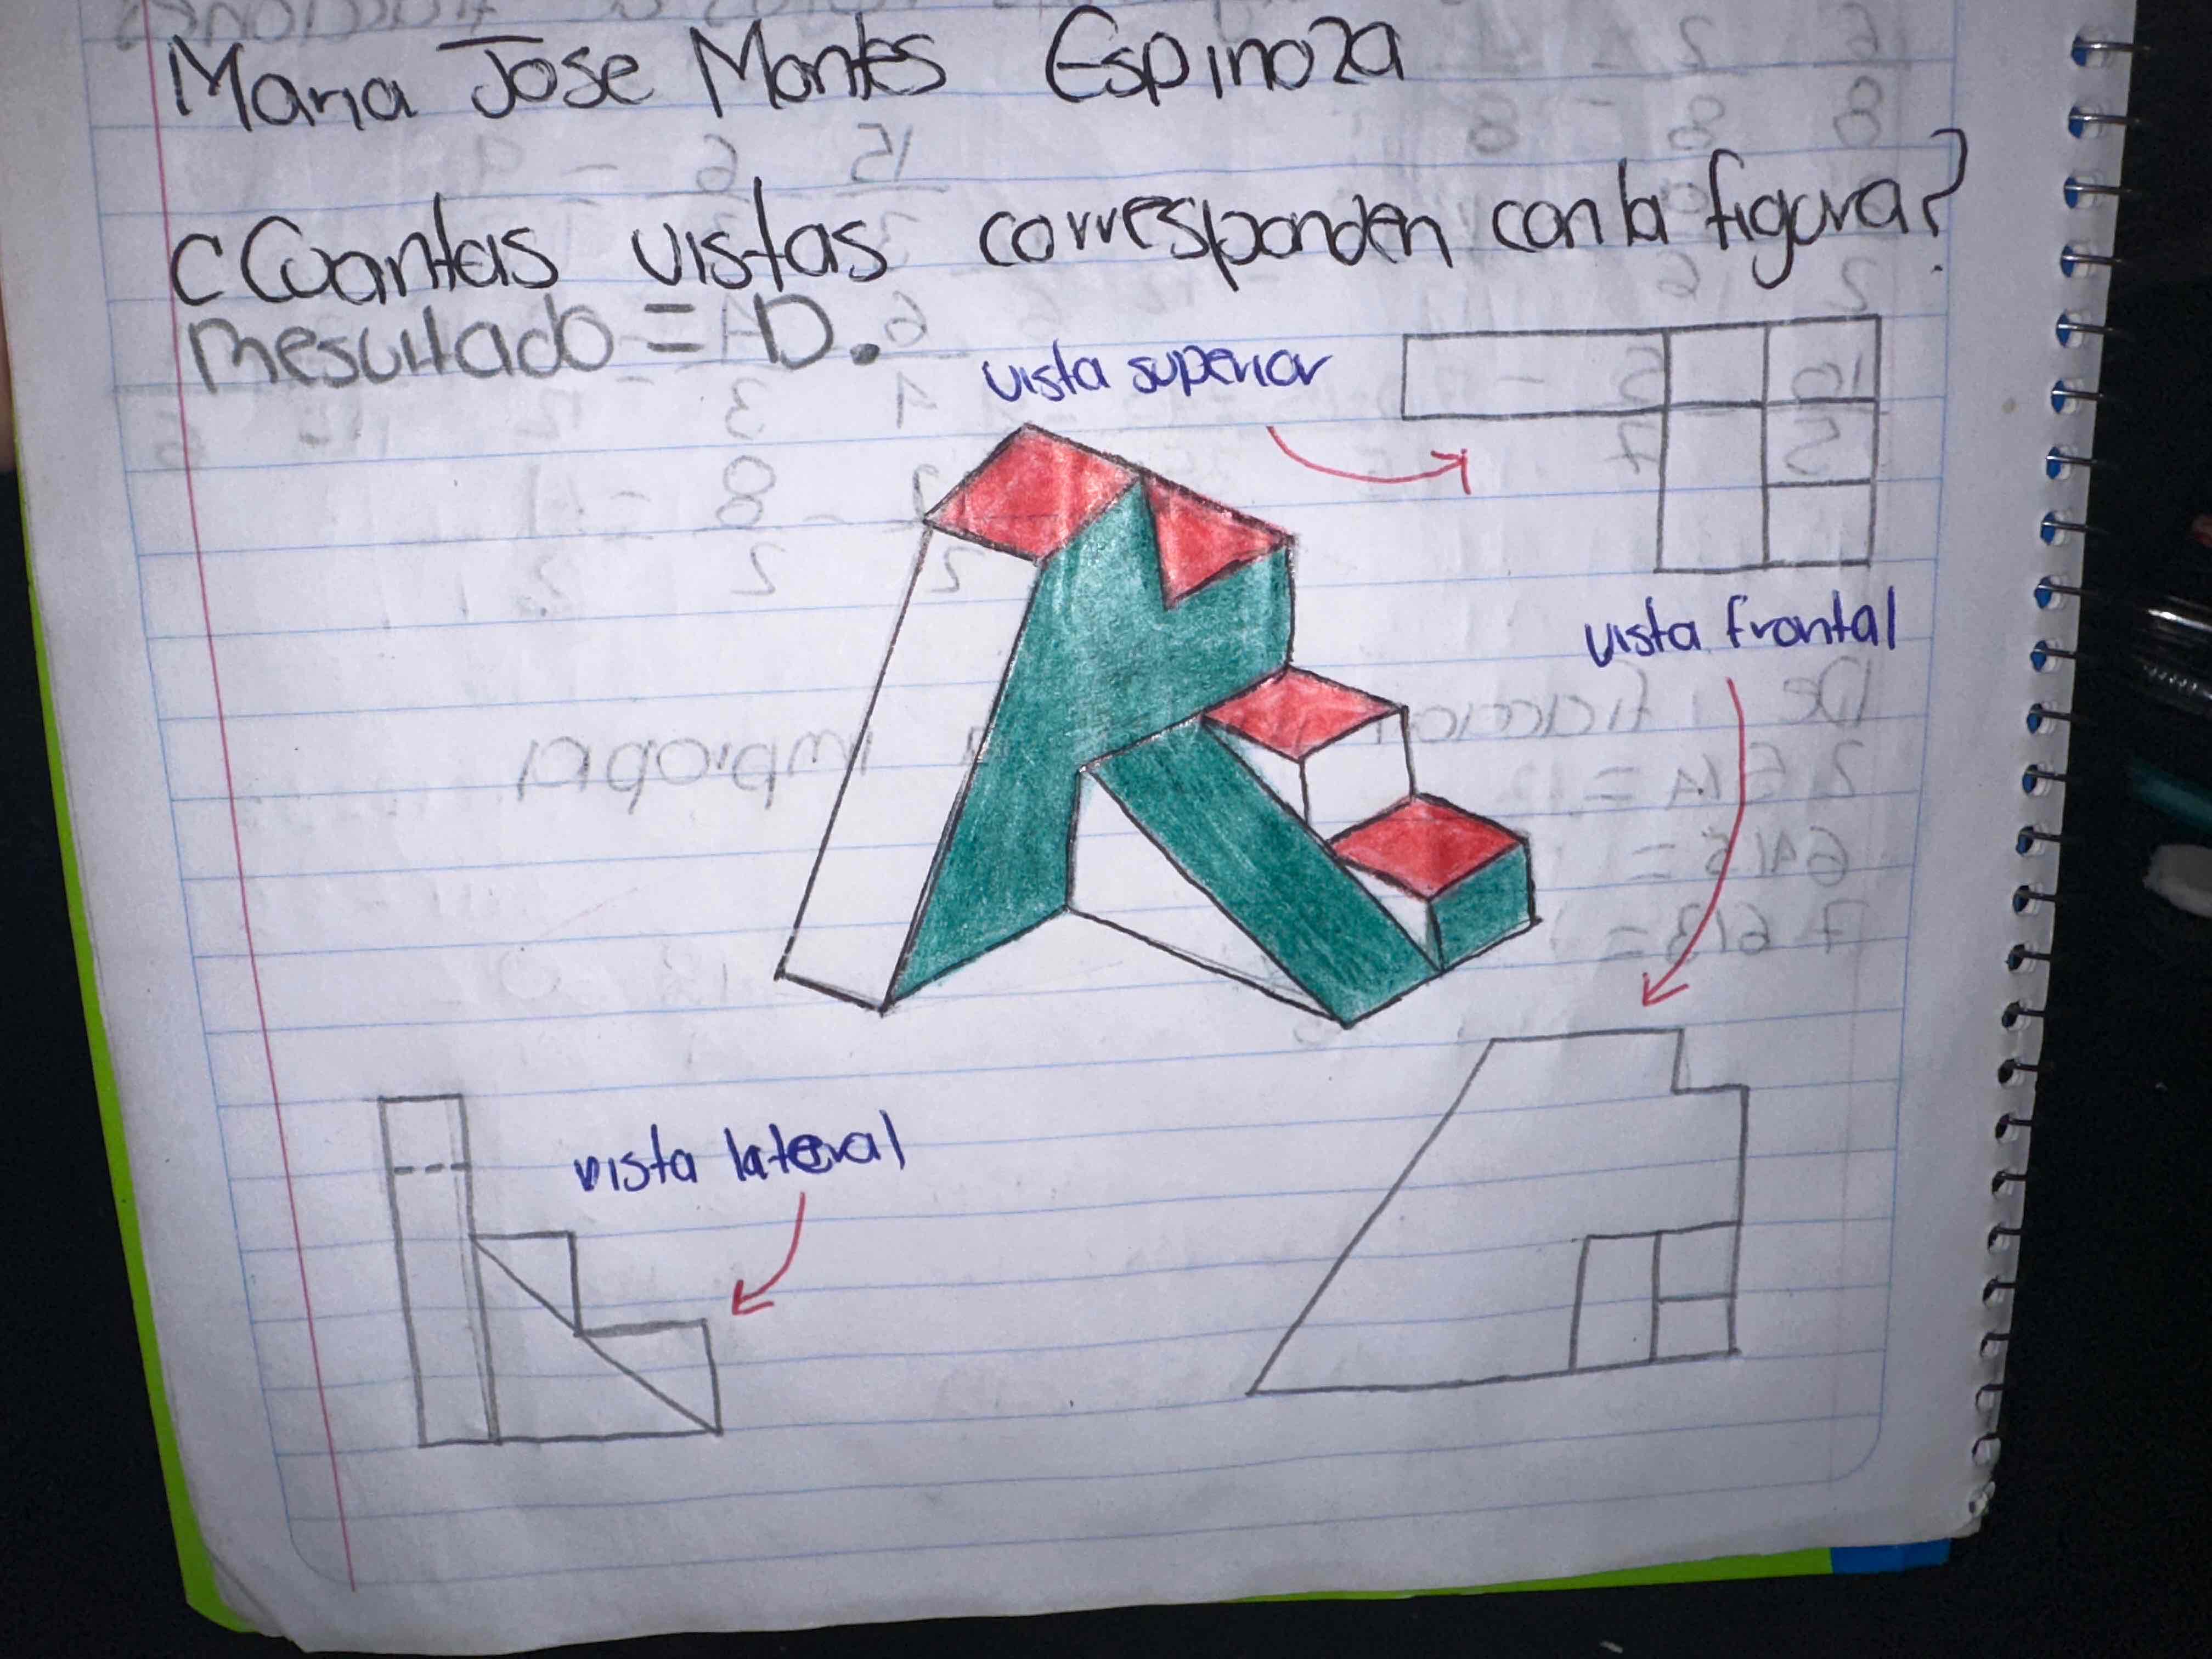 Maria Jose Montes Espinoza
¿Cuantas vistas corresponden con la figura?
Resultado = D.
vista superior
vista frontal
vista lateral